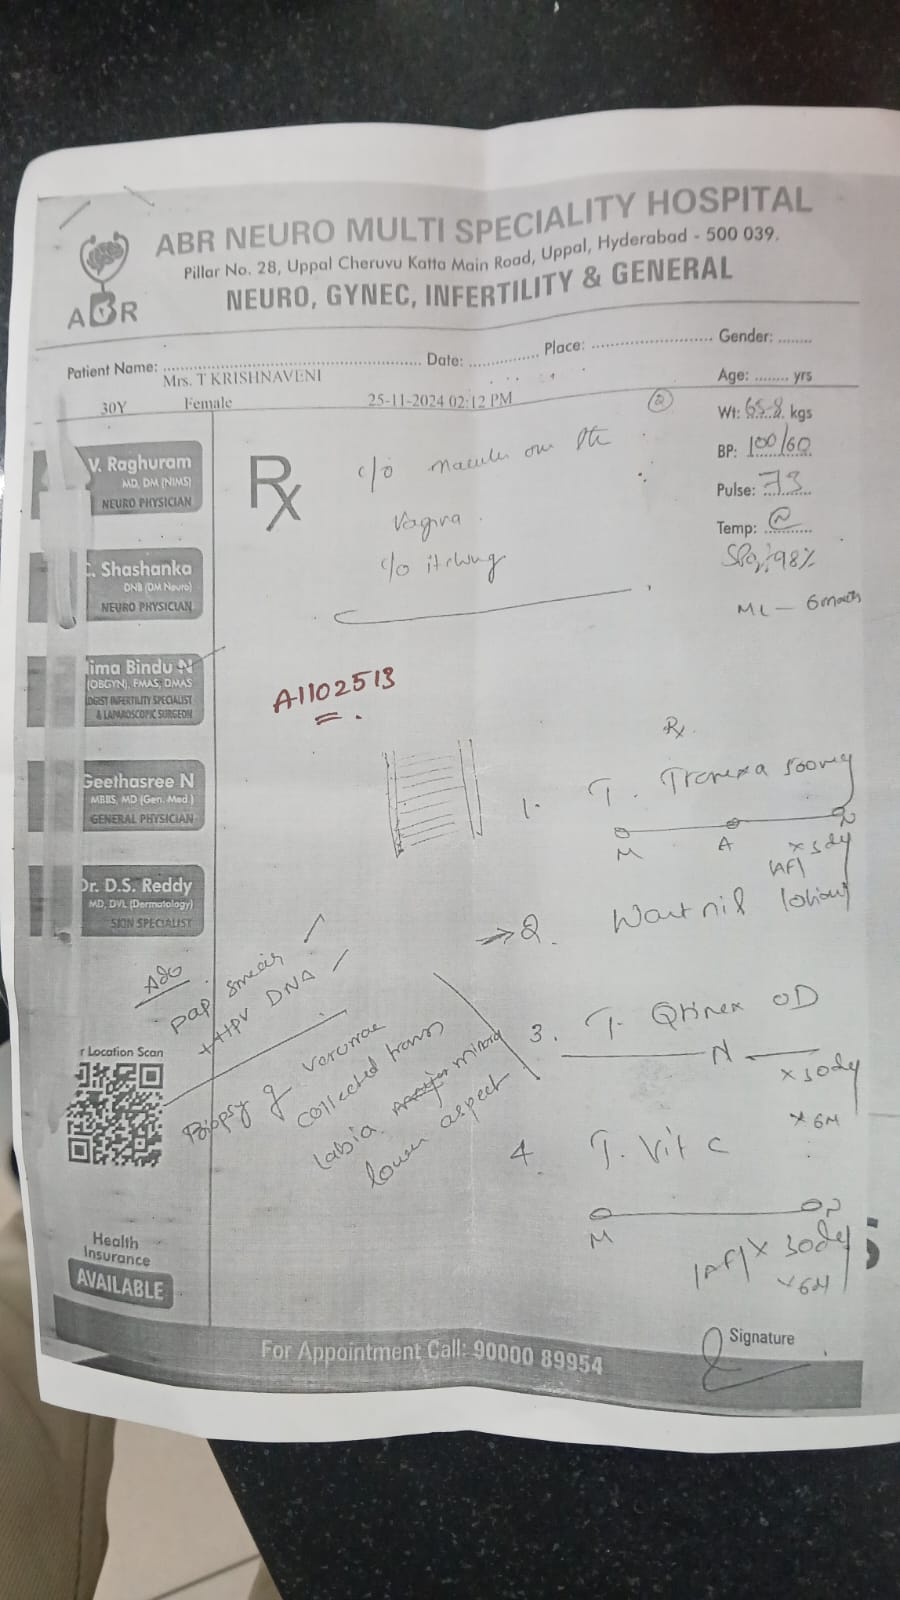 ABR NEURO MULTI SPECIALITY HOSPITAL
Pillar No. 28, Uppal Cheruvu Katta Main Road, Uppal, Hyderabad - 500 039.
NEURO, GYNEC, INFERTILITY & GENERAL
ABR
Patient Name: Date: Place: Gender:
Mrs. T KRISHNAVENI
Age: yrs
30Y Female 25-11-2024 02:12 PM
2
Wt: 65.8 kgs
BP: 100/60
Pulse: 73
Temp: N
SPO2: 98%
ML - 6 month
V. Raghuram
MD, DM (NIMS)
NEURO PHYSICIAN
. Shashanka
DNB (DM Neuro)
NEURO PHYSICIAN
ima Bindu N
(OBGYN), FMAS, DMAS
OGIST INFERTILITY SPECIALIST
& LAPAROSCOPIC SURGEON
Geethasree N
MBBS, MD (Gen. Med.)
GENERAL PHYSICIAN
Dr. D.S. Reddy
MD, DVL (Dermatology)
SKIN SPECIALIST
Rx
c/o over the
vagina.
c/o itching
A1102513
Rx
1. T. Tranexa 500mg
M A N
x 3 day
1AF
→ 2. Wart nil lotion
3. T. OD
N
x 30 day
x 6M
4. T. Vit C
M N
1AF x 30 day
x 6M
Ado
pap smear
+ HPV DNA
Biopsy of
collected from
labia minora
lower aspect
r Location Scan
Health
Insurance
AVAILABLE
Signature
For Appointment Call: 90000 89954